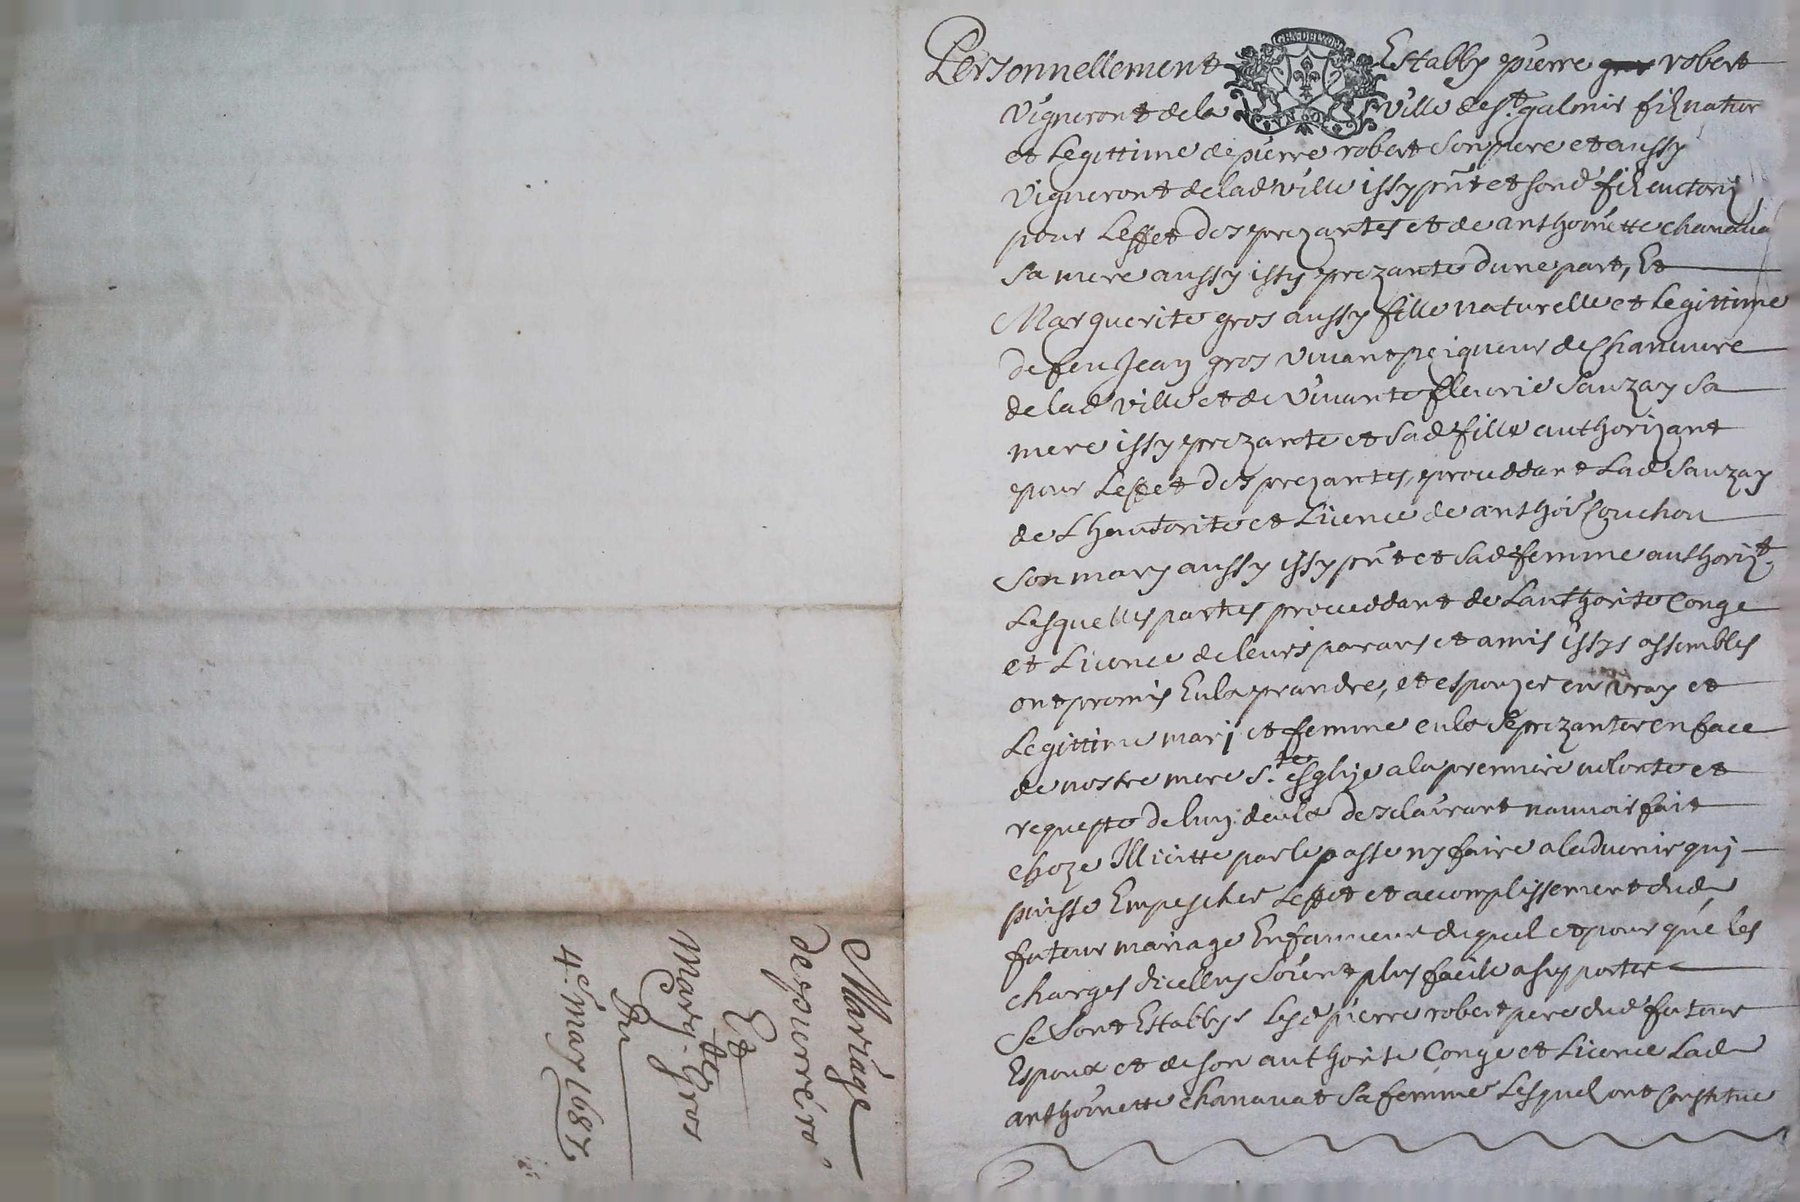 GEN DE LYON
Personnellement Estably pierre robert
Vigneront de la ville de st galmir filz natur
et Legittime de pierre robert son pere et aussy
Vigneront de lad ville issy prnt et sond filz auctori
pour Leffet des prezantes et de anthoinette chanaua
sa mere aussy issy prezante dune part, Et
Marguerite gros aussy fille naturelle et Legittime
de feu Jean gros viuant peigneur de chanuure
de lad ville et de viuante fleurie sauzay sa
mere issy prezante et sad fille authorizant
pour Leffet des prezantes, proceddant Lad sauzay
de Lhautorite et Licence de anthoi couchon
son mary aussy issy prnt et sad femme authorizt
Lesquelles parties proceddant de Lauthorite Conge
et Licence de leurs parans et amis issys assembles
ont promis Eulx prandre, et espouzer en vray et
Legittime mari et femme eulx se prezanter en face
de nostre mere ste esglize a la premiere vollonte et
requeste de luy deulx desclairant nauoir fait
choze Illicitte par le passe ny faire a laduenir qui
puisse Empescher Leffet et accomplissement dud
futeur mariage En faueur duquel et pour que les
charges dicelluy soient plus facille a suporter
se sont Establys Led pierre robert pere dud futeur
Espoux et de son authorite Conge et Licence Lad
anthoinette chanauat sa femme Lesquelz ont Constitue
Mariage
de pierre ro
Et
Margtte Gros
Du
4e may 1687